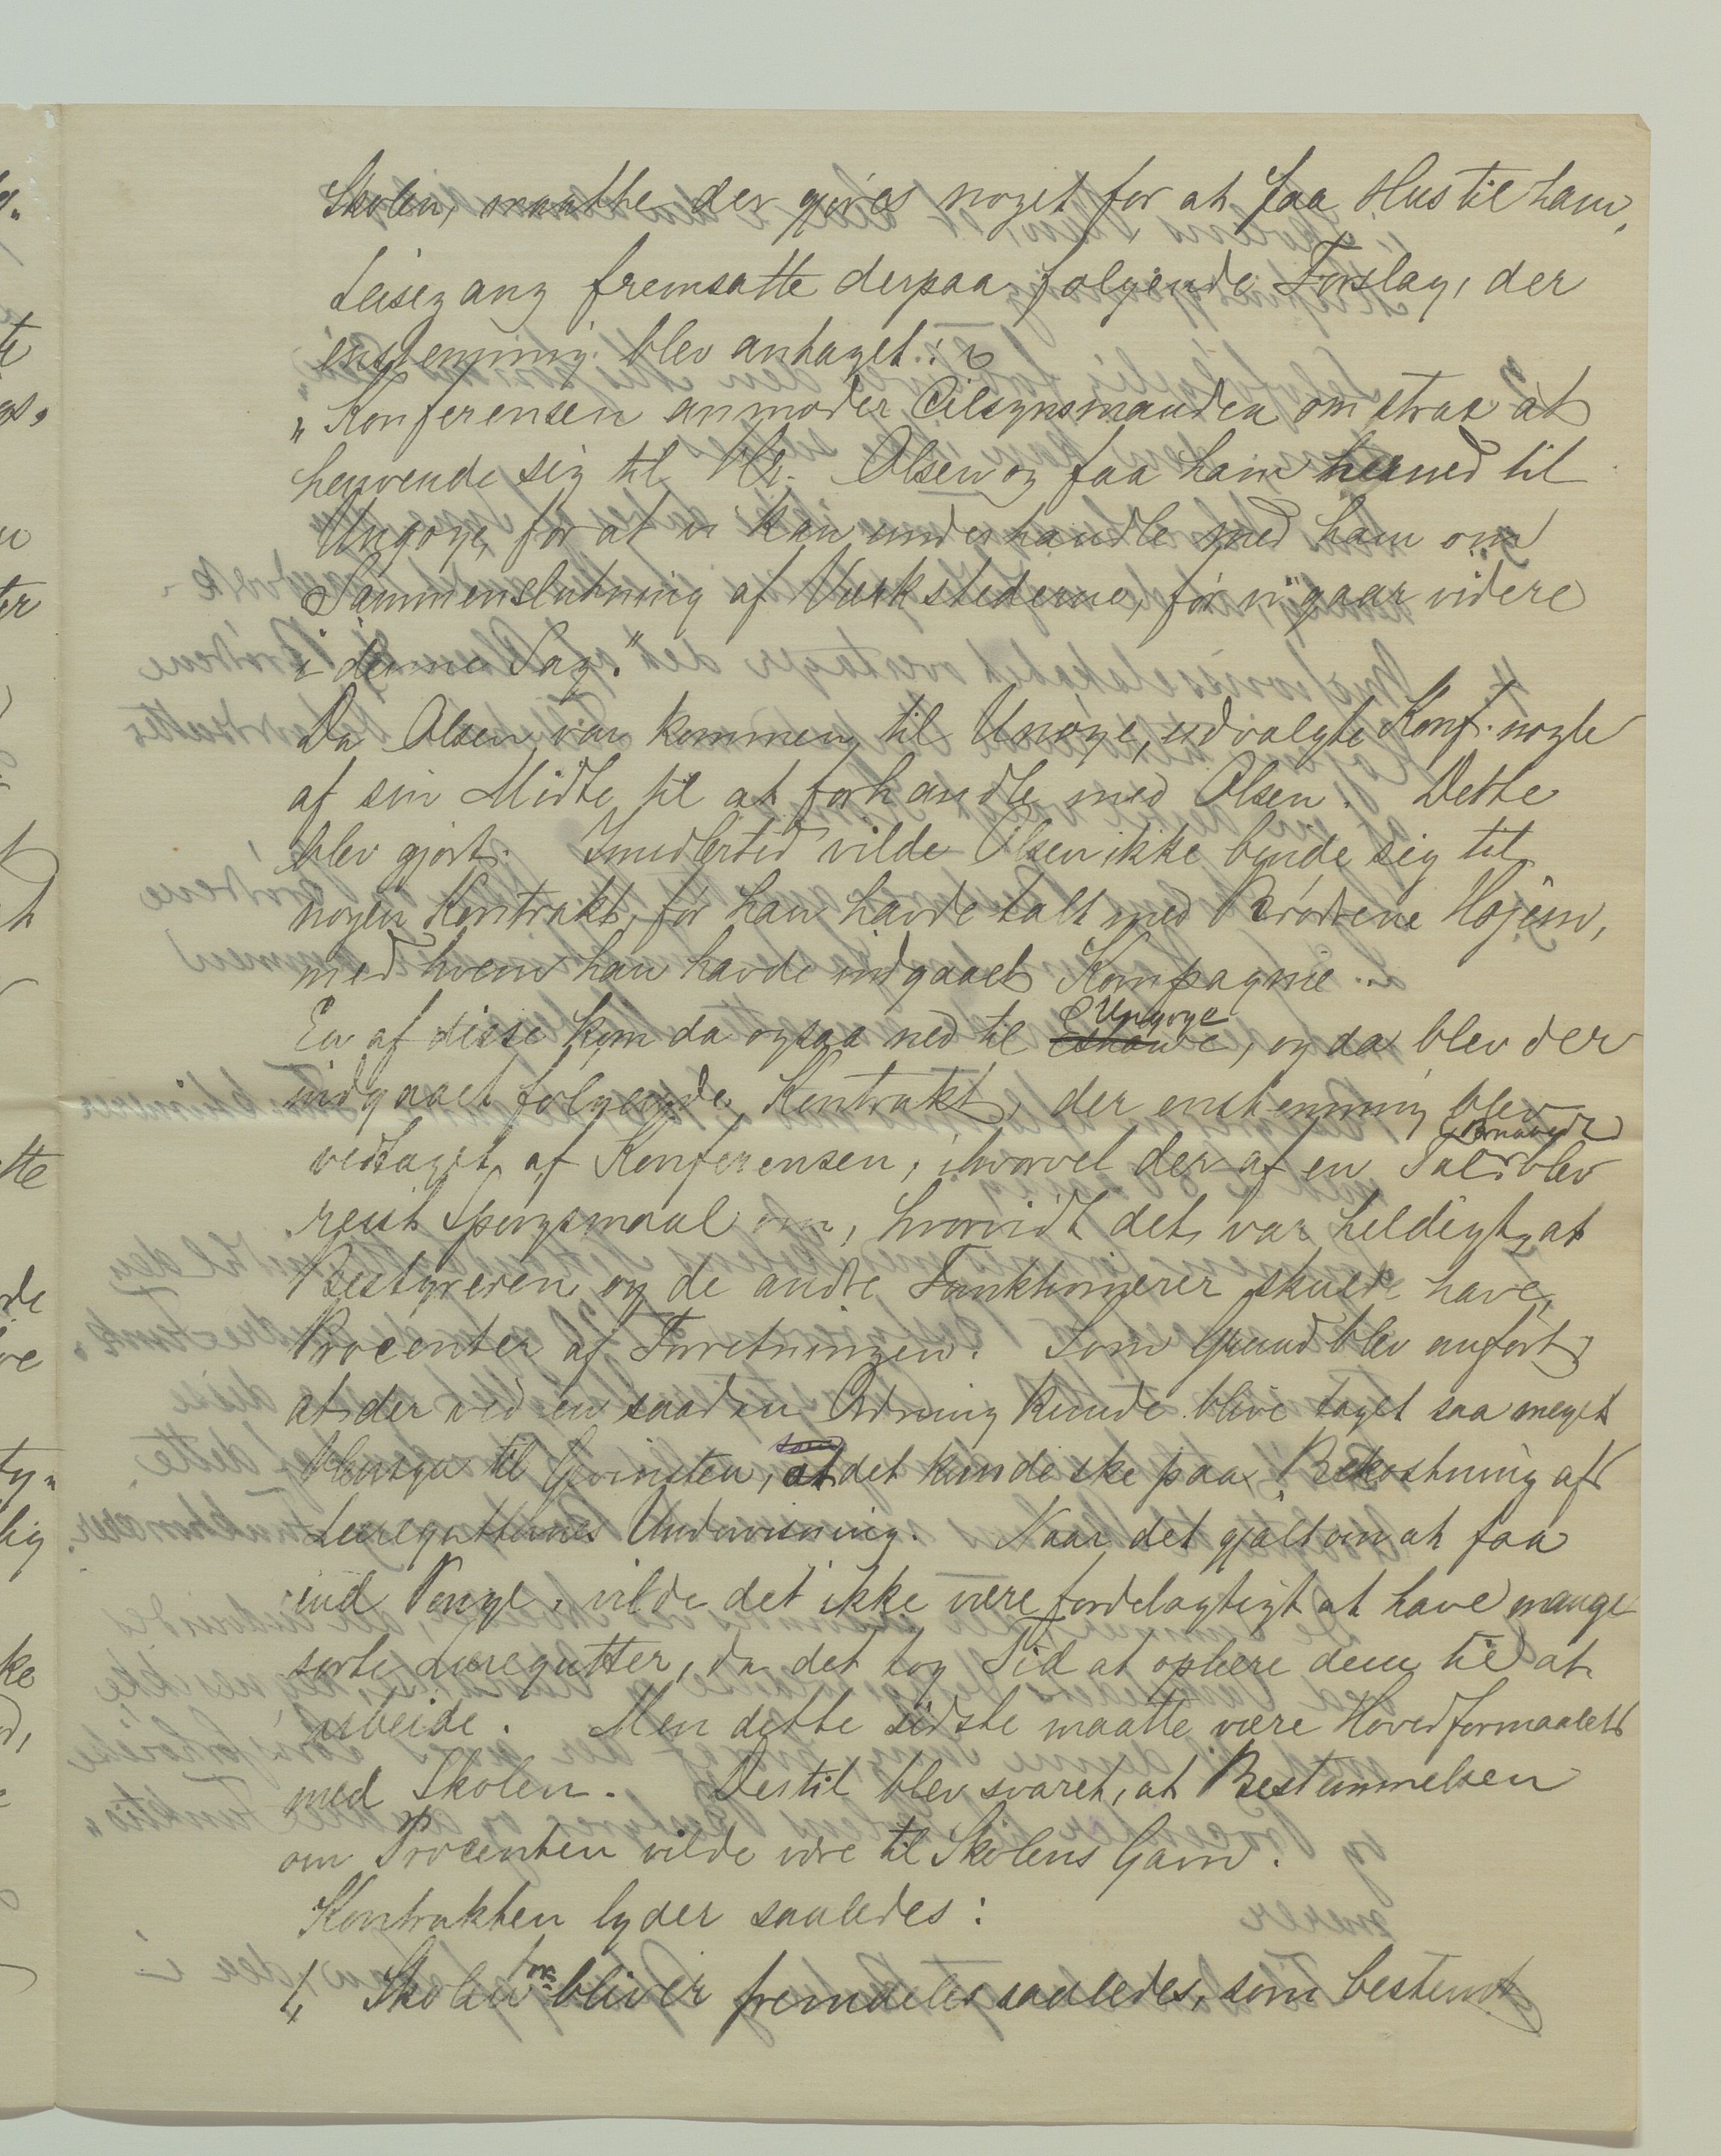 Skolen, maatte der gjøres noget for at faa Hus til ham.
Leisegang fremsatte derpaa følgende Forslag, der
enstemmig blev antaget:
„Konferensen anmoder Tilsynsmanden om strax at
henvende sig til Hr. Olsen og faa ham herned til
Ungoye, for at vi kan underhandle med ham om
Sammenslutning af Værkstederne, før vi gaar videre
i denne Sag."
Da Olsen var kommen til Ungoye, udvalgte Konf. nogle
af sin Midte til at forhandle med Olsen. Dette
blev gjort. Imidlertid vilde Olsen ikke binde sig til
nogen Kontrakt, før han havde talt med Brødrene Højem,
med hvem han havde indgaaet Kompagnie.
En af disse kom da ogsaa ned til Eshowe Ungoye, og da blev der
indgaaet følgende Kontrakt, der enstemmig blev
vedtaget af Konferensen, ihvorvel der af en Taler blev
reist Spørgsmaal om, hvorvidt det var heldigt, at
Bestyreren og de andre Funktionærer skulde have
Procenter af Forretningen. Som Grund blev anført,
at der ved en saadan Ordning kunde blive taget saa meget
Hensyn til Gevinsten, som at det kunde ske paa Bekostning af
Læreguttternes Undervisning. Naar det gjaldt om at faa
ind Penge, vilde det ikke være fordelagtigt at have mange
sorte Læregutter, da det tog Tid at oplære dem til at
arbeide. Men dette sidste maatte være Hovedformaalet
med Skolen. Dertil blev svaret, at Bestemmelsen
om Procenten vilde være til Skolens Gavn.
Kontrakten lyder saaledes:
1, Skolen bliver fremdeles saaledes, som bestemt